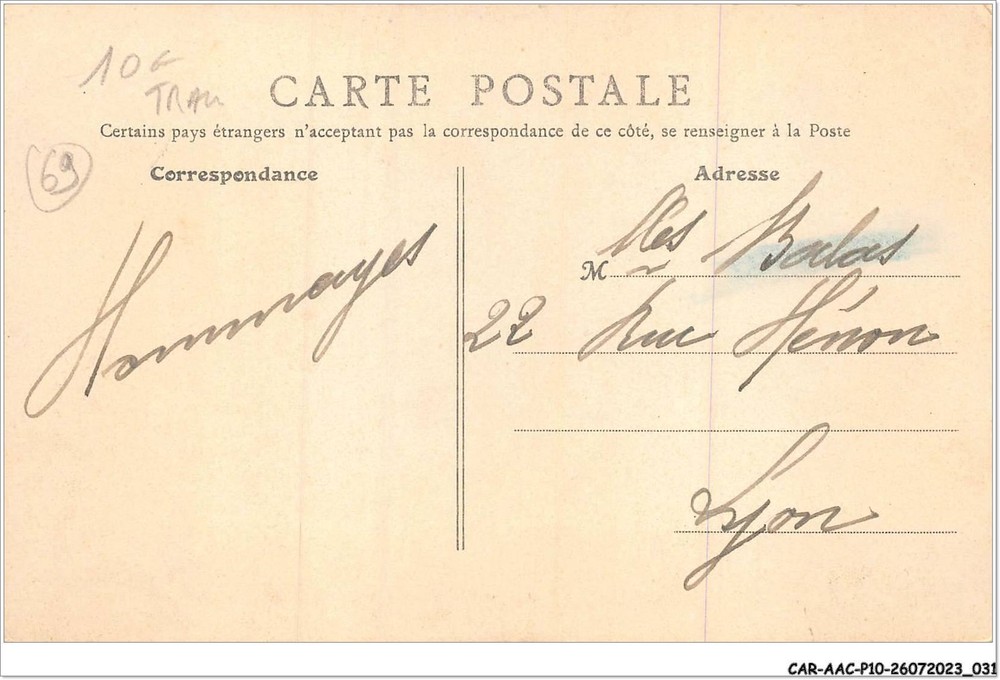 10€
TRAM
CARTE POSTALE
Certains pays étrangers n'acceptant pas la correspondance de ce côté, se renseigner à la Poste
69
Correspondance
Hommages
Adresse
Mlles Balas
22 Rue Hénon
Lyon
CAR-AAC-P10-26072023_031